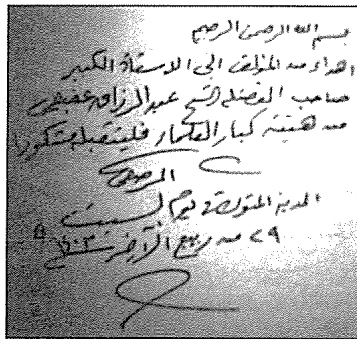 بسم الله الرحمن الرحيم
اهداء من المؤلف الى الاستاذ الكبير
صاحب الفضيلة الشيخ عبد الرزاق عفيفي
من هيئة كبار العلماء فليتقبله مشكورا
المرصفي
المدينة المنورة يوم السبت
٢٩ من ربيع الآخر